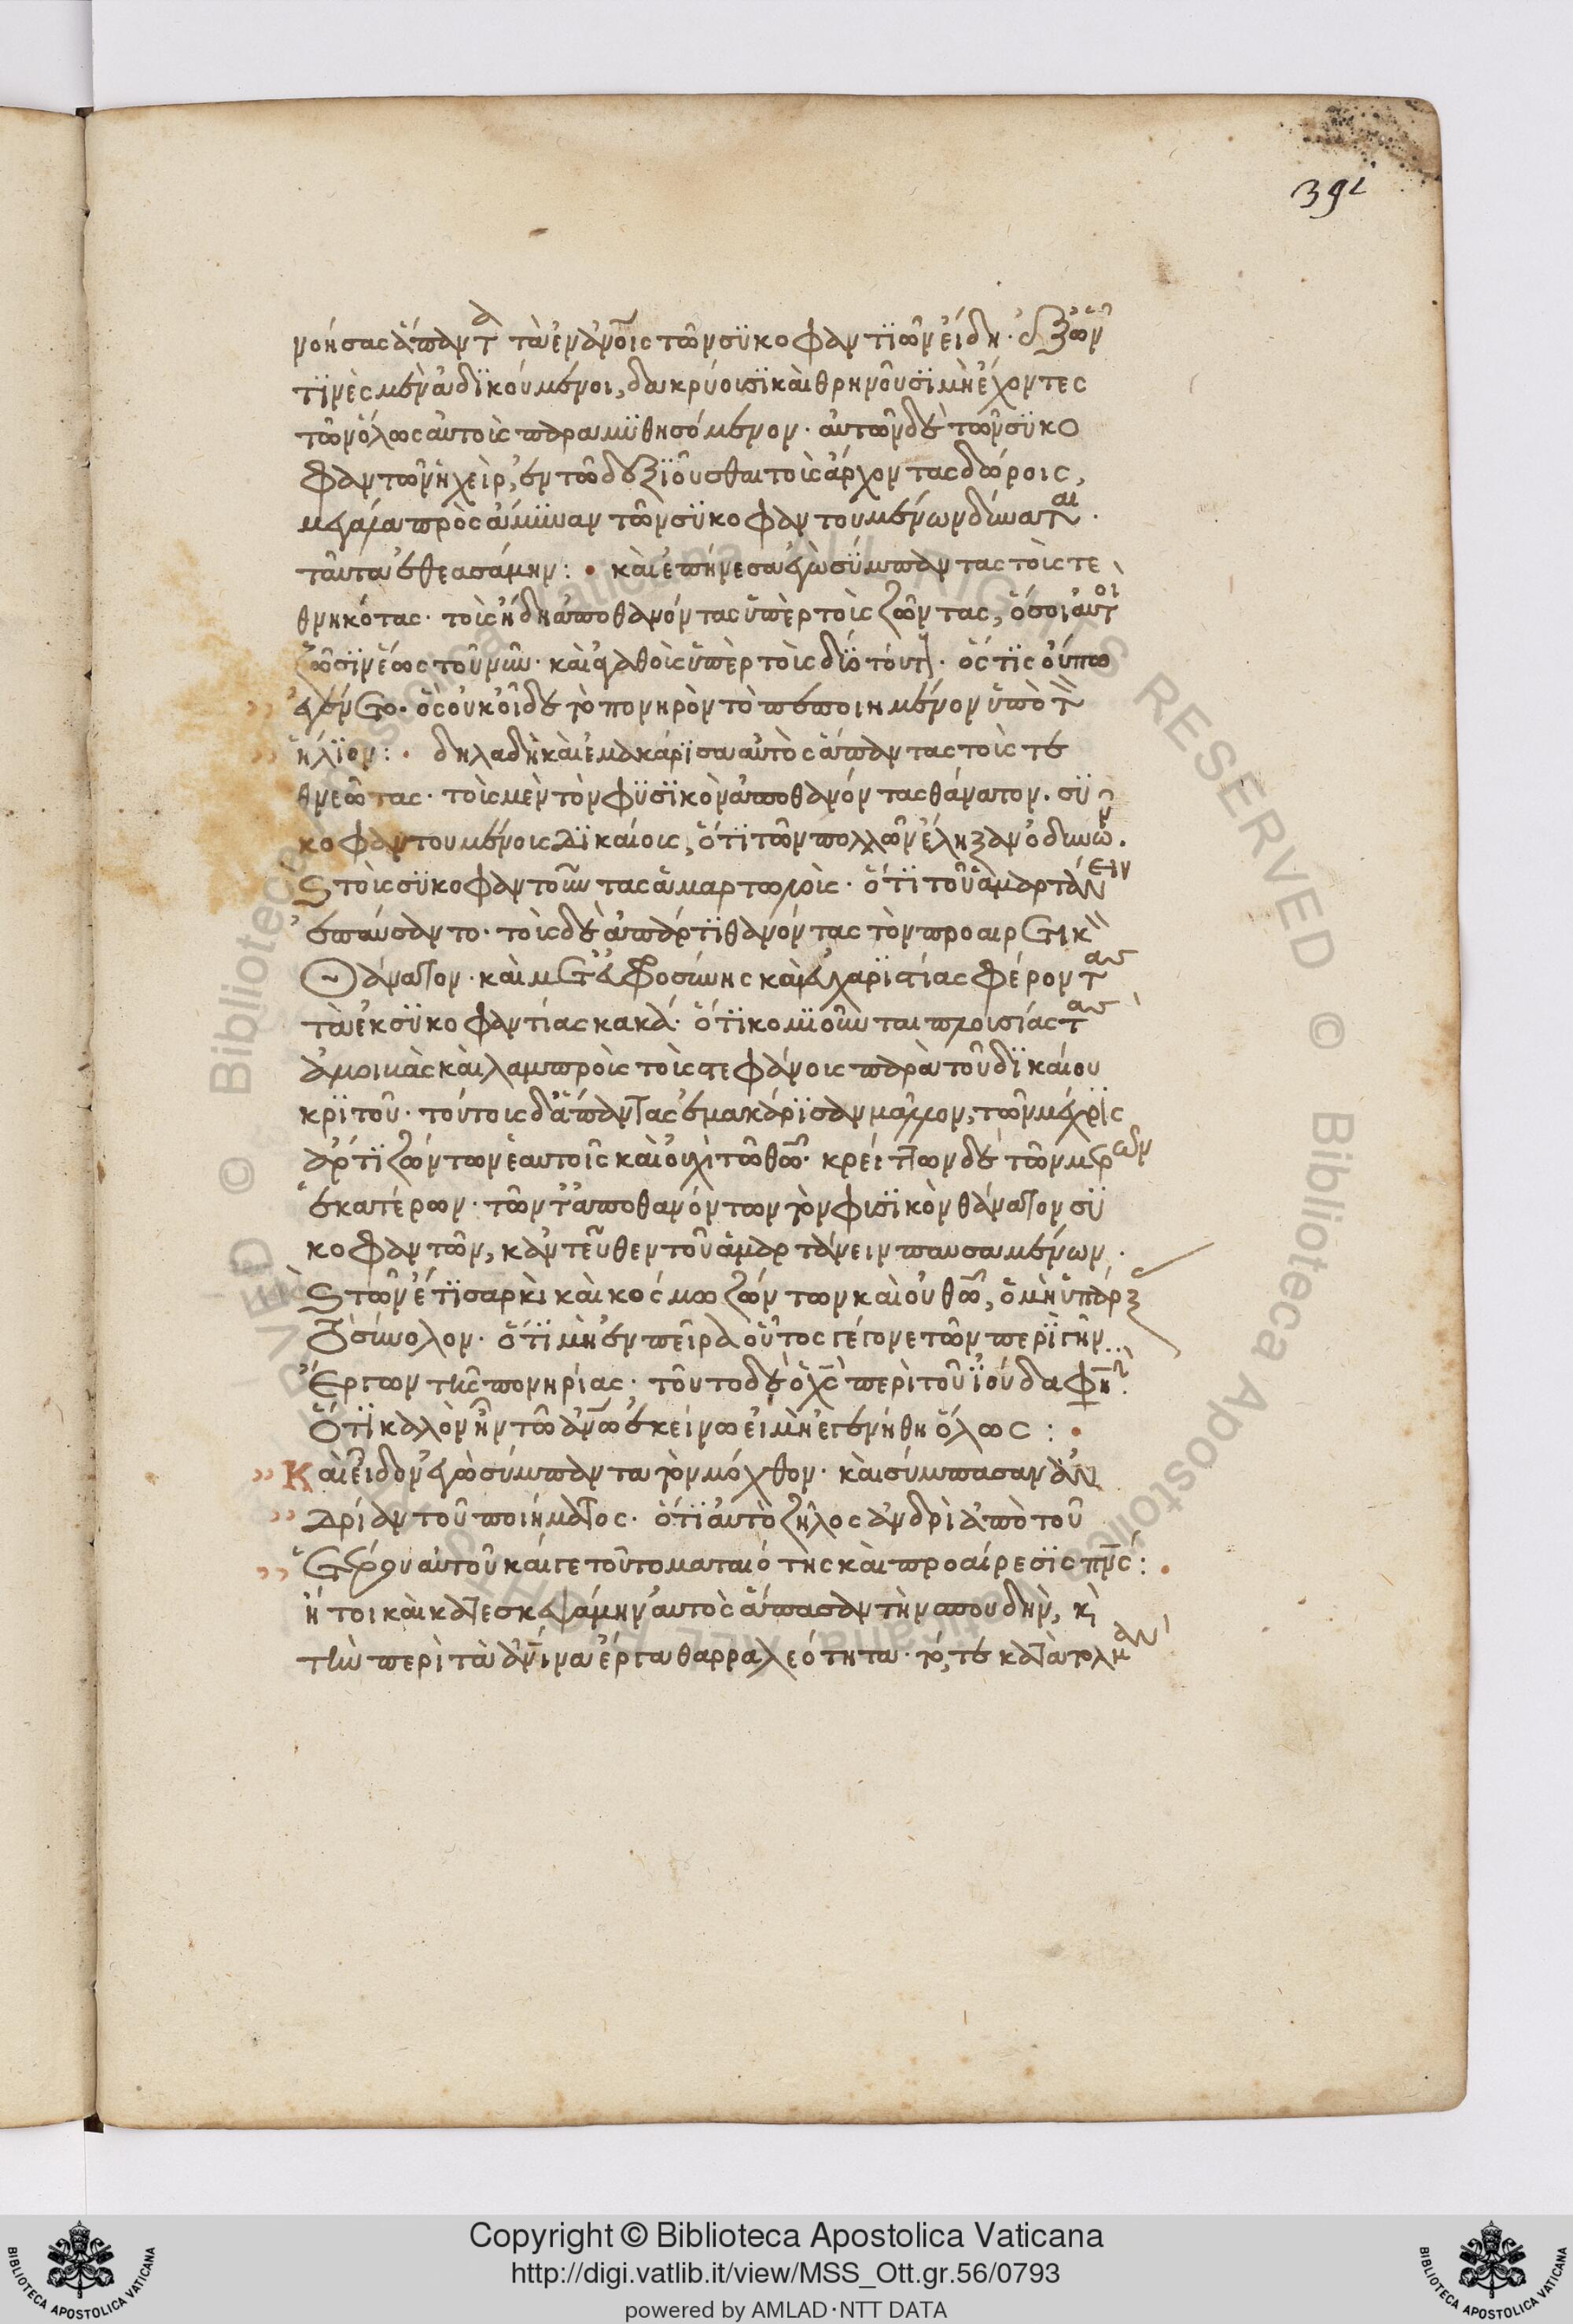 391
νοήσας ἅπαντα τὰ ἐν ἀνοις τῶν συκοφαντιῶν εἴδη· ἐξ ὧν
τινὲς μὲν ἀδικούμενοι, δακρύουσι καὶ θρηνοῦσι μὴ ἔχοντες
τὸν ὅλως αὐτοὺς παραμυθησόμενον· αὐτῶν δὲ τῶν συκο
φαντῶν ἡ χεὶρ, ἐν τῶ δεξιοῦσθαι τοὺς ἄρχοντας δώροις,
μεγάλα πρὸς ἄμυναν τῶν συκοφαντουμένων δύναται·
ταῦτα ἐθεασάμην: καὶ ἐπήνεσα ἐγὼ σύμπαντας τοὺς τε
θνηκότας· τοὺς ἤδη ἀποθανόντας ὑπὲρ τοὺς ζῶντας, ὅσοι αὐτοὶ
ζῶσιν ἕως τοῦ νῦν· καὶ ἀγαθοὺς ὑπὲρ τοὺς δύο τούτους· ὅστις οὔπω
ἐγένετο· ὃς οὐκ οἶδε τὸ πονηρὸν τὸ πεποιημένον ὑπὸ τὸν
ἥλιον: δηλαδὴ καὶ ἐμακάρισα αὐτὸς ἅπαντας τοὺς τε
θνεῶτας· τοὺς μὲν τὸν φυσικὸν ἀποθανόντας θάνατον. συ
κοφαντουμένους δικαίους, ὅτι τῶν πολλῶν ἔληξαν ὀδυνῶν.
καὶ τοὺς συκοφαντοῦντας ἁμαρτωλοὺς· ὅτι τοῦ ἁμαρτάνειν
ἐπαύσαντο· τοὺς δὲ ἀπάρτι θανόντας τὸν προαιρετικὸν
θάνατον· καὶ μετ' εὐφροσύνης καὶ εὐχαριστίας φέροντας
τὰ ἐκ συκοφαντίας κακά· ὅτι κομιοῦνται πλουσίας τὰς
ἀμοιβὰς καὶ λαμπροὺς τοὺς στεφάνους παρὰ τοῦ δικαίου
κριτοῦ· τούτους δ' ἅπαντας ἐμακάρισαν μᾶλλον, τῶν μέχρις
ἄρτι ζώντων ἑαυτοῖς καὶ οὐχὶ τῶ θῶ· κρείττων δὲ τῶν μερῶν
ἑκατέρων· τῶν τ' ἀποθανόντων τὸν φυσικὸν θάνατον συ
κοφαντῶν, κἀντεῦθεν τοῦ ἁμαρτάνειν παυσαμένων·
καὶ τῶν ἔτι σαρκὶ καὶ κόσμω ζώντων καὶ οὐ θῶ, ὁ μὴ ὑπάρξ
τὸ σύνολον· ὅτι μὴ ἐν πείρα οὗτος γέγονε τῶν περὶ γῆν
ἔργων τῆς πονηρίας· τοῦτο δὲ ὁ χς περὶ τοῦ ἰούδα φησὶ·
ὅτι καλὸν ἦν τῶ ἀνω ἐκείνω εἰ μὴ ἐγενήθη ὅλως:
Καὶ εἶδον ἐγὼ σύμπαντα τὸν μόχθον· καὶ σύμπασαν ἀν
δρίαν τοῦ ποιήματος· ὅτι αὐτὸ ζῆλος ἀνδρὶ ἀπὸ τοῦ
ἑτέρου αὐτοῦ καί γε τοῦτο ματαιότης καὶ προαίρεσις πνς:
ἤτοι καὶ κατεσκεψάμην αὐτὸς ἅπασαν τὴν σπουδὴν, καὶ
τὴν περὶ τὰ ἀνινα ἔργα θαρραλεότητα· τό, τε κατατολμᾶν
Copyright © Biblioteca Apostolica Vaticana
http://digi.vatlib.it/view/MSS_Ott.gr.56/0793
powered by AMLAD·NTT DATA